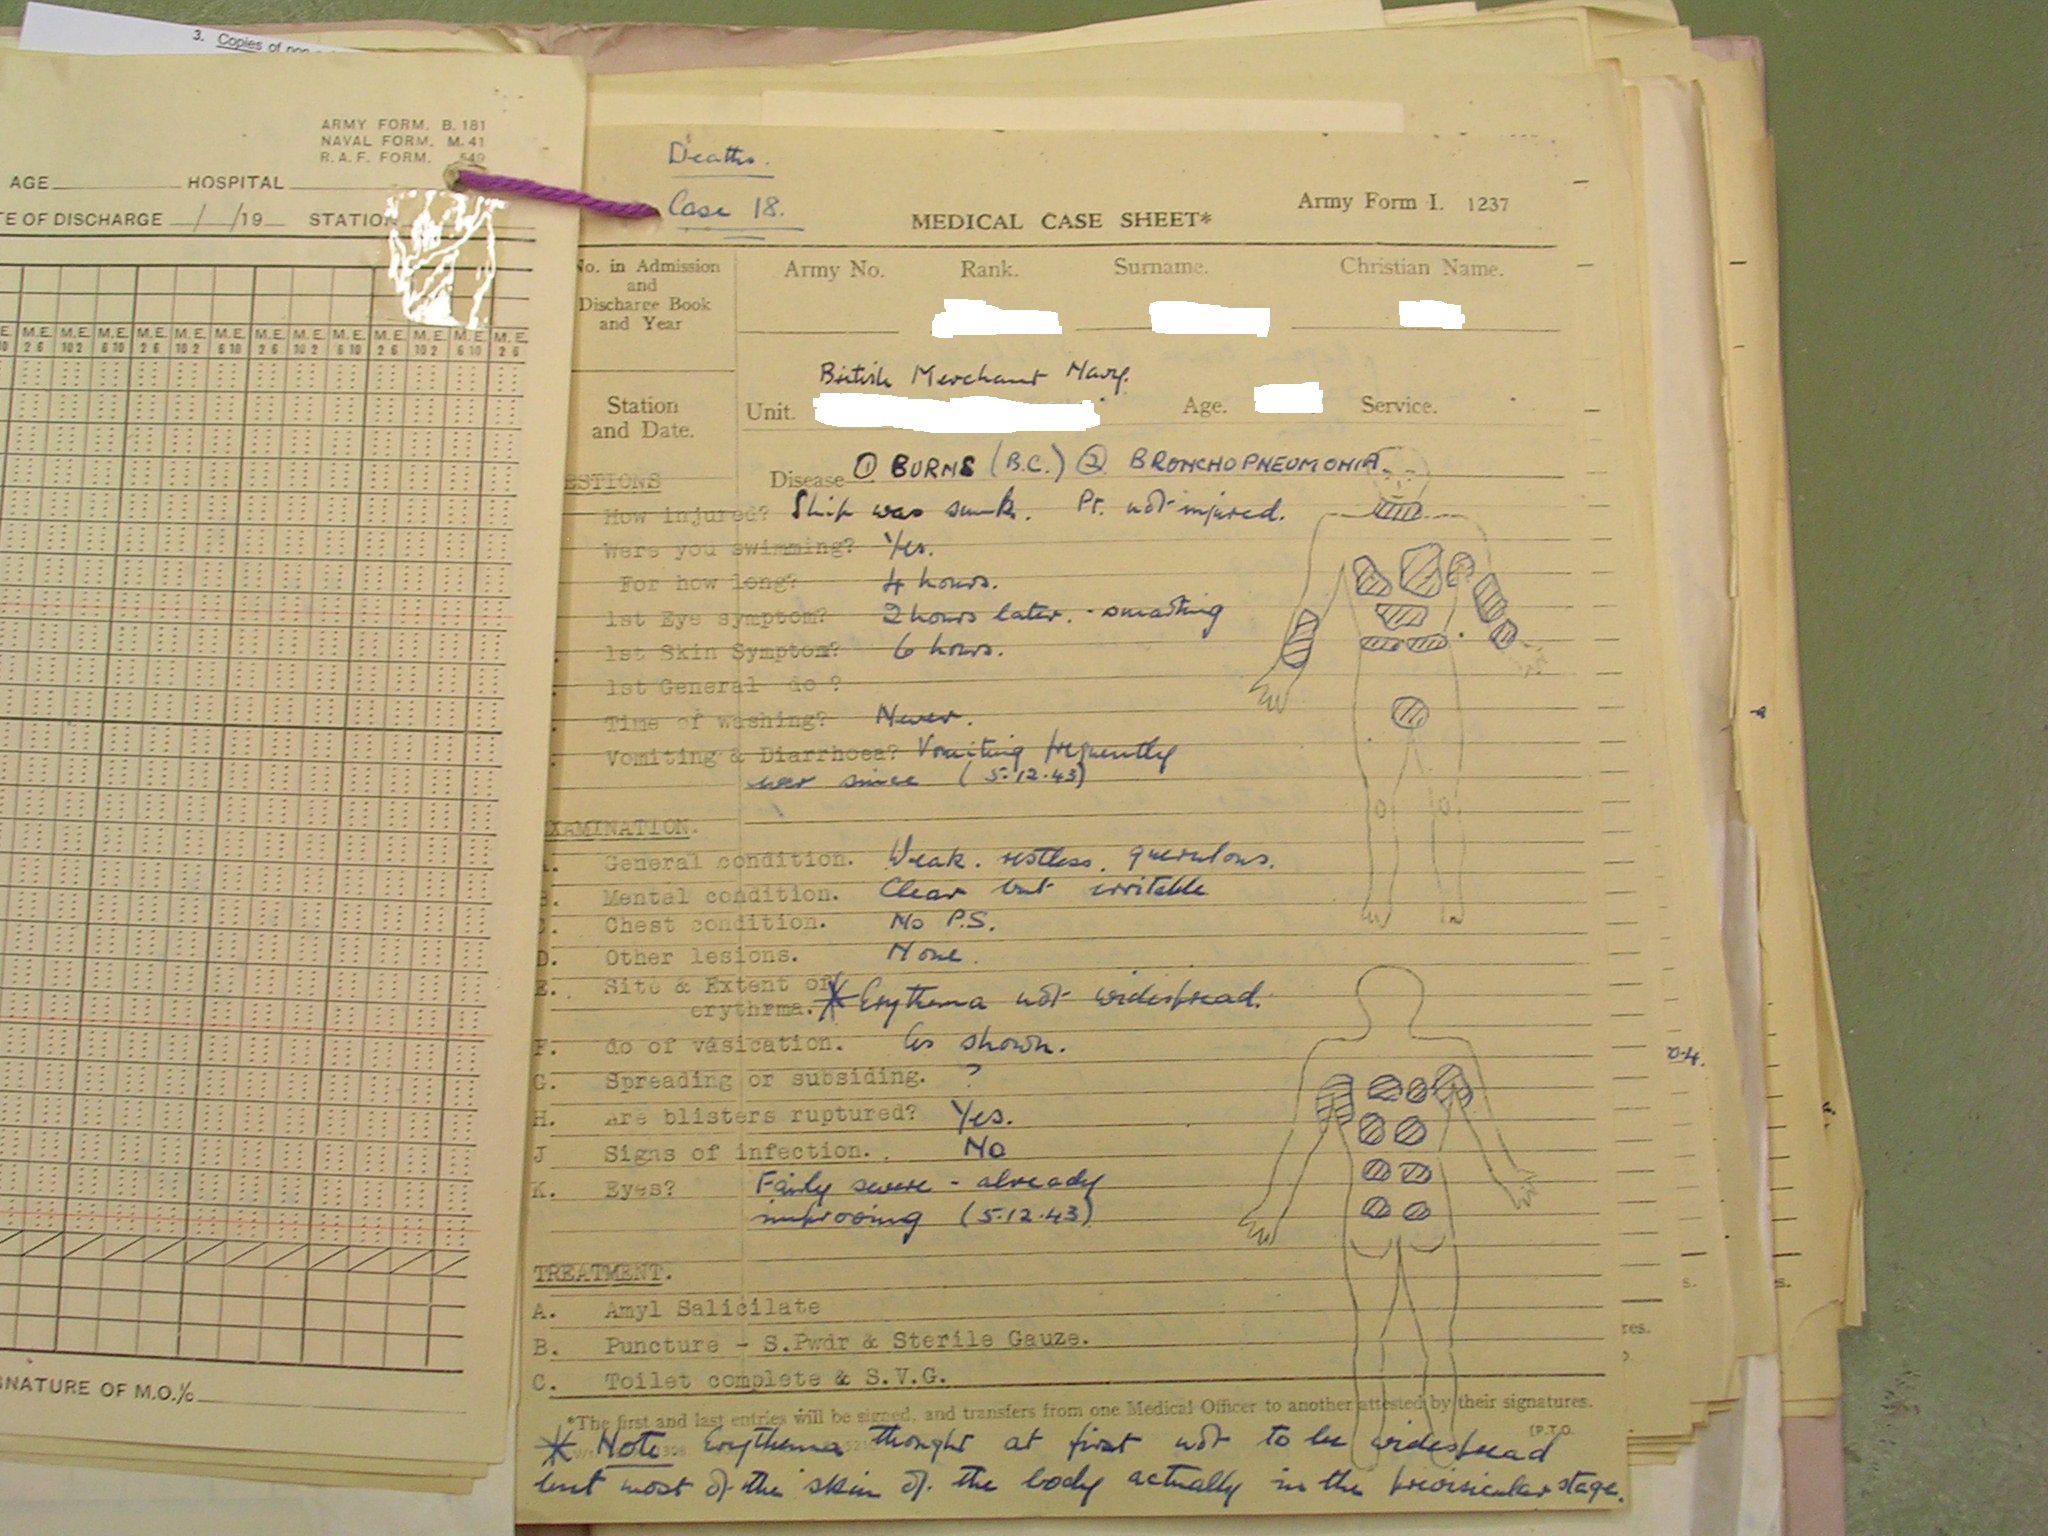 3. Copies of
ARMY FORM. B. 181
NAVAL FORM. M. 41
R. A. F. FORM. 549
AGE HOSPITAL
TE OF DISCHARGE / /19 STATION
E. M. E. M. E. M. E. M. E. M. E. M. E. M. E. M. E. M. E. M. E. M. E. M. E. M. E.
10 2 6 10 2 6 10 2 6 10 2 6 10 2 6 10 2 6 10 2 6 10 2 6 10 2 6 10 2 6
GNATURE OF M.O.I/c
Deaths.
Case 18.
MEDICAL CASE SHEET*
Army Form I. 1237
No. in Admission
and
Discharge Book
and Year
Army No. Rank. Surname. Christian Name.
British Merchant Navy.
Station
and Date.
Unit. Age. Service.
Disease ① BURNS (B.C.) ② BRONCHOPNEUMONIA
ESTIONS
How injured? Ship was sunk. Pt. not injured.
Were you swimming? Yes.
For how long? 4 hours.
1st Eye symptom? 2 hours later. - smarting
1st Skin Symptom? 6 hours.
1st General do ?
Time of washing? Never.
Vomiting & Diarrhoea? Vomiting frequently
ever since (5.12.43)
EXAMINATION.
A. General condition. Weak. restless. querulous.
B. Mental condition. Clear but irritable
C. Chest condition. No P.S.
D. Other lesions. None.
E. Site & Extent of
erythrma. * Erythema not widespread.
F. do of vasication. As shown.
G. Spreading or subsiding. ?
H. Are blisters ruptured? Yes.
J Signs of infection. . No
K. Eyes? Fairly severe - already
improving (5.12.43)
TREATMENT.
A. Amyl Salicilate
B. Puncture - S.Pwdr & Sterile Gauze.
C. Toilet complete & S.V.G.
*The first and last entries will be signed, and transfers from one Medical Officer to another attested by their signatures.
[P.T.O.
* Note Erythema thought at first not to be widespread
but most of the skin of the body actually in the previsicular stage.